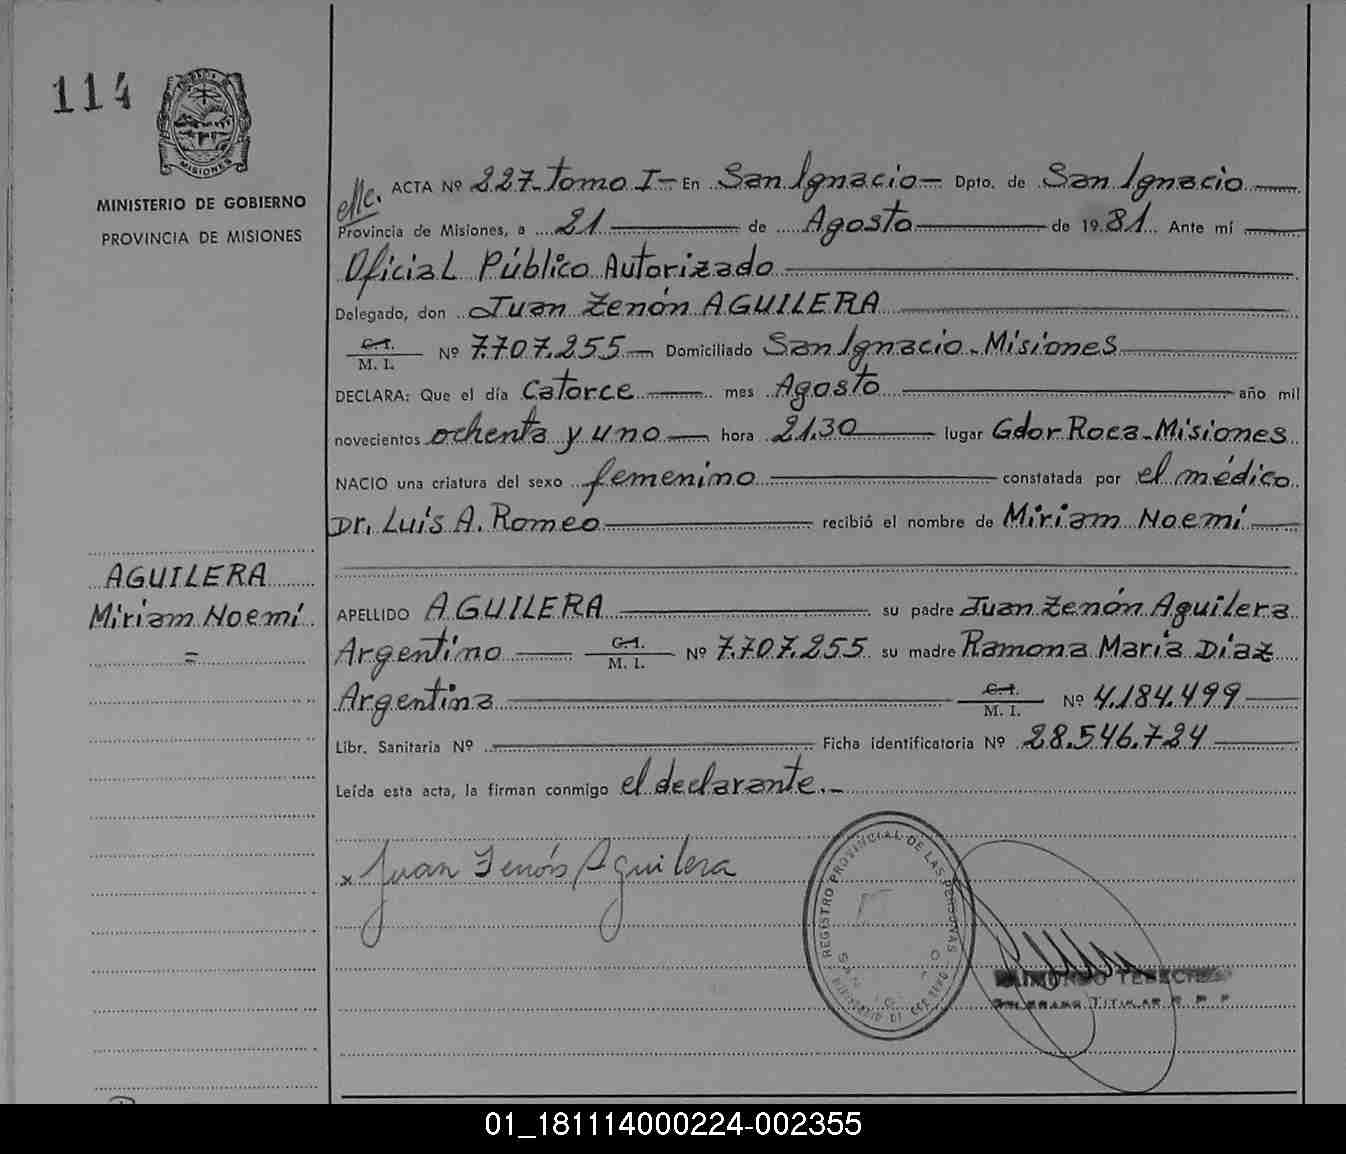 114
MISIONES
MINISTERIO DE GOBIERNO
PROVINCIA DE MISIONES
AGUILERA
Miriam Noemí
=
ACTA Nº 227 - Tomo I - En San Ignacio - Dpto. de San Ignacio
Provincia de Misiones, a 21 de Agosto de 1981. Ante mí
Oficial Público Autorizado
Delegado, don Juan Zenón AGUILERA
C.I.
M. I. Nº 7.707.255 Domiciliado San Ignacio - Misiones
DECLARA: Que el día Catorce mes Agosto año mil
novecientos ochenta y uno hora 21.30 lugar Gdor Roca - Misiones
NACIO una criatura del sexo femenino constatada por el médico
Dr. Luis A. Romeo recibió el nombre de Miriam Noemí
APELLIDO AGUILERA su padre Juan Zenón Aguilera
Argentino C.I.
M. I. Nº 7.707.255 su madre Ramona Maria Diaz
Argentina C.I.
M. I. Nº 4.184.499
Libr. Sanitaria Nº Ficha identificatoria Nº 28.546.724
Leída esta acta, la firman conmigo el declarante.-
x Juan Zenón Aguilera
REGISTRO PROVINCIAL DE LAS PERSONAS
MINISTERIO DE GOBIERNO
01_181114000224-002355